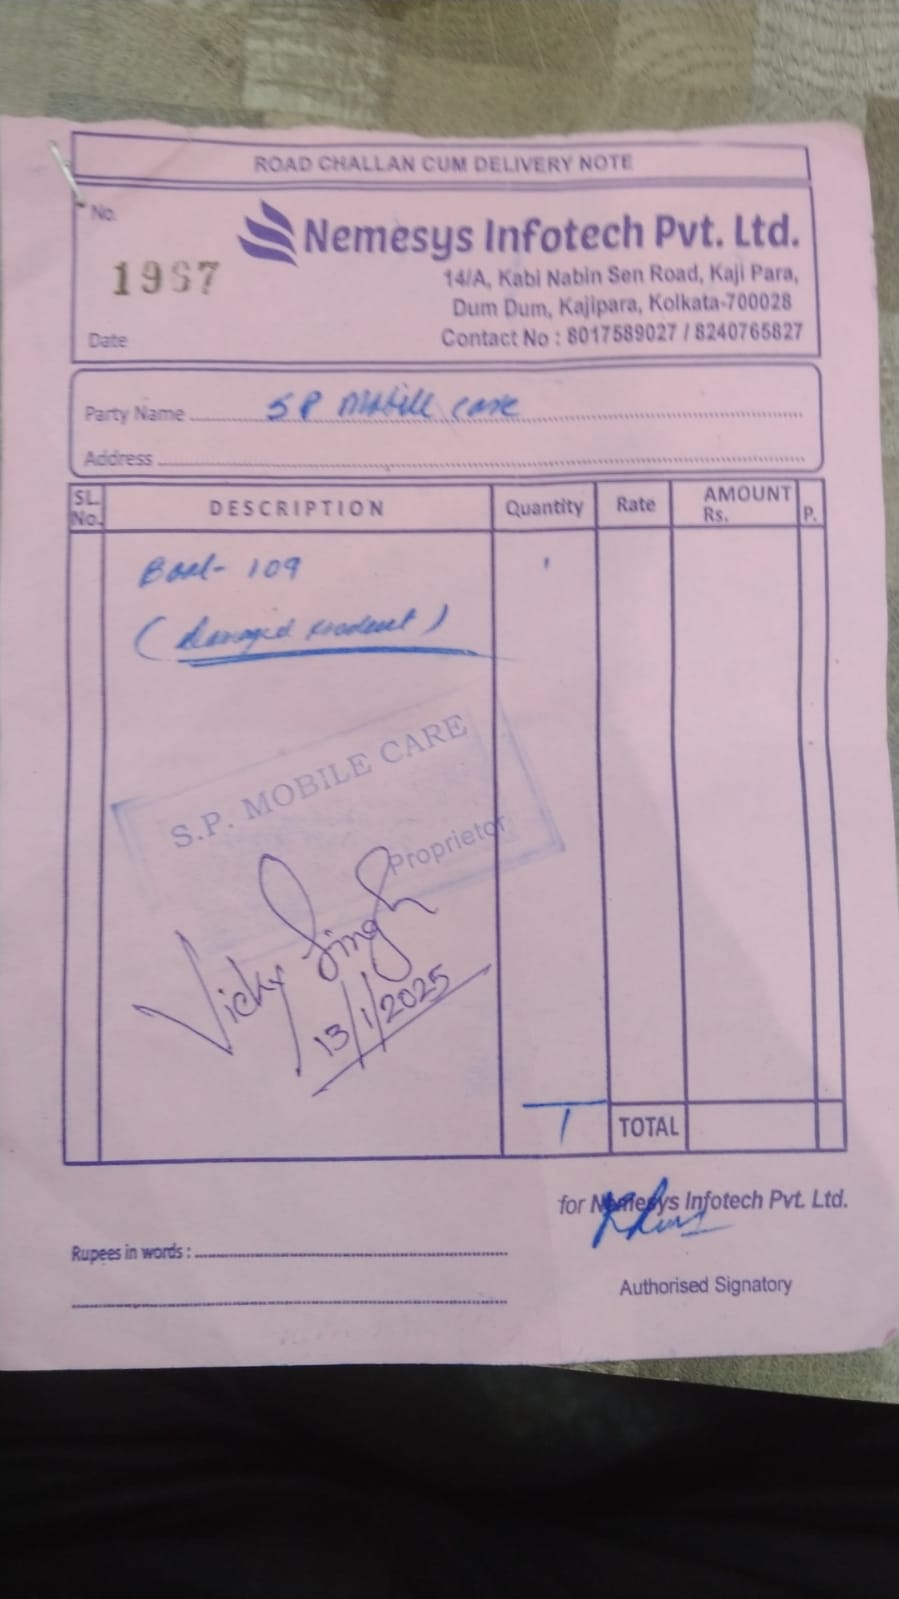 ROAD CHALLAN CUM DELIVERY NOTE
No.
1967
Nemesys Infotech Pvt. Ltd.
14/A, Kabi Nabin Sen Road, Kaji Para,
Dum Dum, Kajipara, Kolkata-700028
Date
Contact No : 8017589027 / 8240765827
Party Name SP Mobile care
Address
SL. No. DESCRIPTION Quantity Rate AMOUNT Rs. P.
109 1
(damaged product)
S.P. MOBILE CARE
Proprietor
Vicky Singh
13/1/2025
1 TOTAL
for Nemesys Infotech Pvt. Ltd.
Rupees in words :
Authorised Signatory